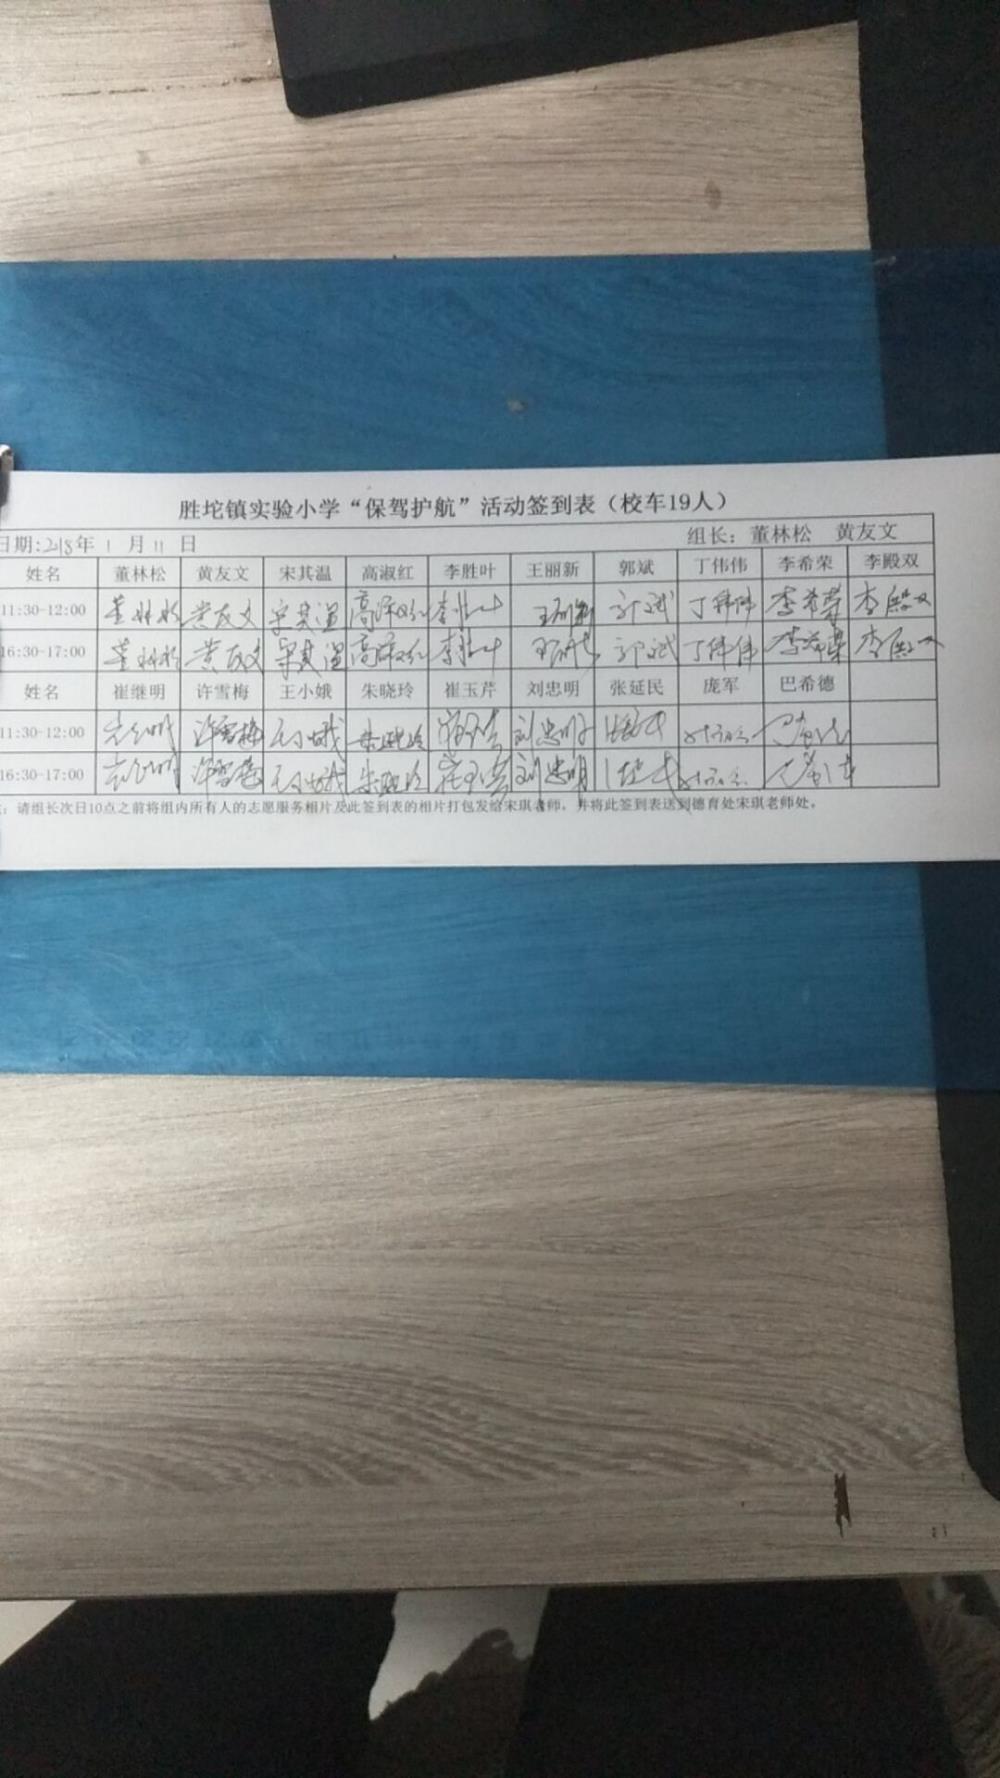 胜坨镇实验小学“保驾护航”活动签到表（校车19人）
日期:2018年 1 月 11 日 组长：董林松 黄友文
姓名 董林松 黄友文 宋其温 高淑红 李胜叶 王丽新 郭斌 丁伟伟 李希荣 李殿双
11:30-12:00 董林松 黄友文 宋其温 高淑红 李胜叶 王丽新 郭斌 丁伟伟 李希荣 李殿双
16:30-17:00 董林松 黄友文 宋其温 高淑红 李胜叶 王丽新 郭斌 丁伟伟 李希荣 李殿双
姓名 崔继明 许雪梅 王小娥 朱晓玲 崔玉芹 刘忠明 张延民 庞军 巴希德
11:30-12:00 许雪梅 王小娥 朱晓玲 刘忠明
16:30-17:00 许雪梅 王小娥 朱晓玲 刘忠明
：请组长次日10点之前将组内所有人的志愿服务相片及此签到表的相片打包发给宋琪老师，并将此签到表送到德育处宋琪老师处。